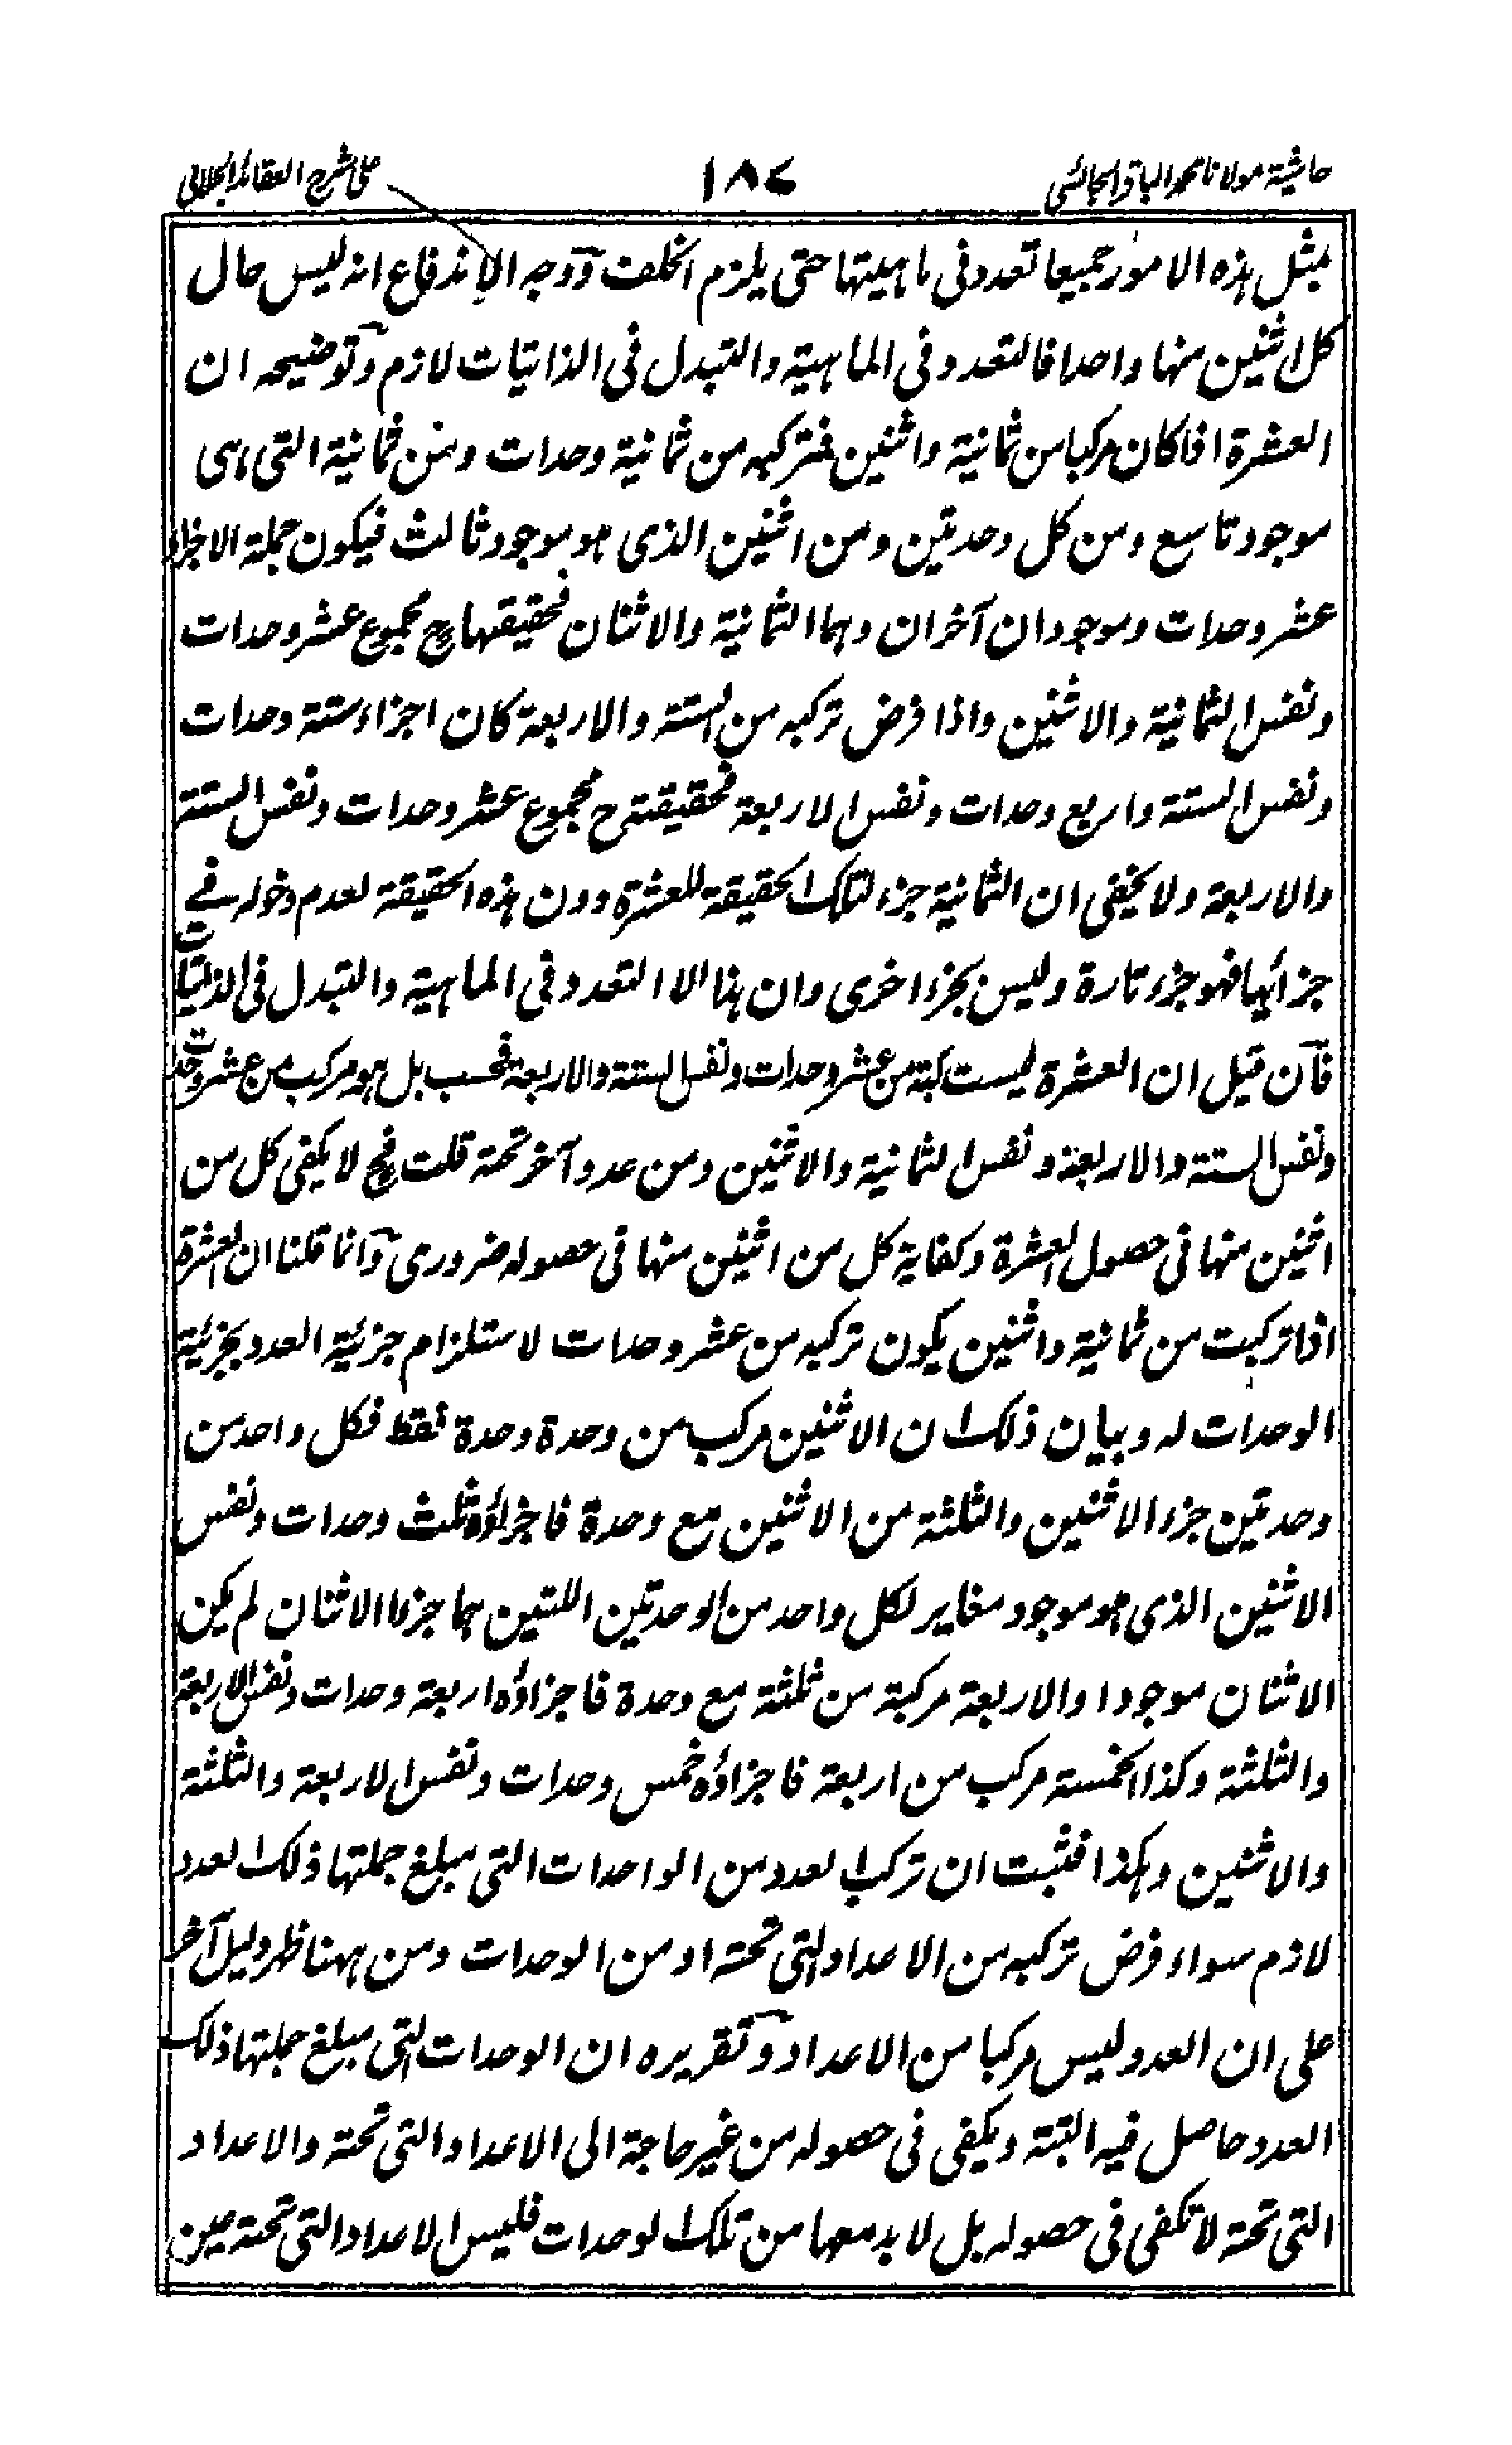 حاشية مولانا محمد الباقر الجالسى
١٨٧
على شرح العقائد الجلالى
بمثل هذه الامور جميعا تعدد فى ماهيتها حتى يلزم الخلف ووجه الاندفاع انه ليس حال
كل اثنين منها واحدا فالتعدد فى الماهية والتبدل فى الذاتيات لازم وتوضيحه ان
العشرة اذا كان مركبا من ثمانية واثنين فتركبه من ثمانية وحدات ومن ثمانية التى هى
موجود تاسع ومن كل وحدتين ومن اثنين الذى هو موجود ثالث فيكون جملة الاجزاء
عشر وحدات وموجودان آخران وهما الثمانية والاثنان فحقيقتها ح مجموع عشر وحدات
ونفس الثمانية والاثنين واذا فرض تركبه من الستة والاربعة كان اجزاء ستة وحدات
ونفس الستة واربع وحدات ونفس الاربعة فحقيقته ح مجموع عشر وحدات ونفس الستة
والاربعة ولا يخفى ان الثمانية جزء لتلك الحقيقة للعشرة دون هذه الحقيقة لعدم دخوله فے
جزأيها فهو جزء تارة وليس بجزء اخرى وان هذا الا التعدد فى الماهية والتبدل فى الذاتيات
فان قيل ان العشرة ليست مركبة من عشر وحدات ونفس الستة والاربعة فحسب بل هو مركب من عشر وحدات
ونفس الستة والاربعة ونفس الثمانية والاثنين ومن عدد آخر تحته قلت فح لا يكفى كل من
اثنين منها فى حصول العشرة وكفاية كل من اثنين منها فى حصوله ضرورى وانما قلنا ان العشرة
اذا تركبت من ثمانية واثنين يكون تركبه من عشر وحدات لاستلزام جزئية العدد بجزئية
الوحدات له وبيان ذلك ان الاثنين مركب من وحدة وحدة فقط فكل واحد من
وحدتين جزء الاثنين والثلثة من الاثنين مع وحدة فاجزاؤه ثلث وحدات ونفس
الاثنين الذى هو موجود مغاير لكل واحد من الوحدتين اللتين هما جزءا الاثنان لم يكن
الاثنان موجودا والاربعة مركبة من ثلثة مع وحدة فاجزاؤه اربعة وحدات ونفس الاربعة
والثلثة وكذا الخمسة مركب من اربعة فاجزاؤه خمس وحدات ونفس الاربعة والثلثة
والاثنين وهكذا فثبت ان تركب العدد من الواحدات التى مبلغ جملتها ذلك العدد
لازم سواء فرض تركبه من الاعداد التى تحته او من الوحدات ومن ههنا ظهر دليل آخر
على ان العدد ليس مركبا من الاعداد وتقريره ان الوحدات التى مبلغ جملتها ذلك
العدد حاصل فيه البتة ويكفى فى حصوله من غير حاجة الى الاعداد التى تحته والاعداد
التى تحته لا تكفى فى حصوله بل لا بد معها من تلك الوحدات فليس الاعداد التى تحته حين